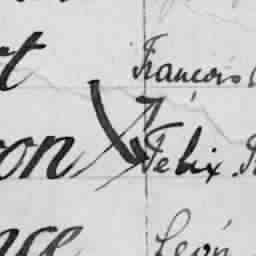 t François
on Felix
nce Léon